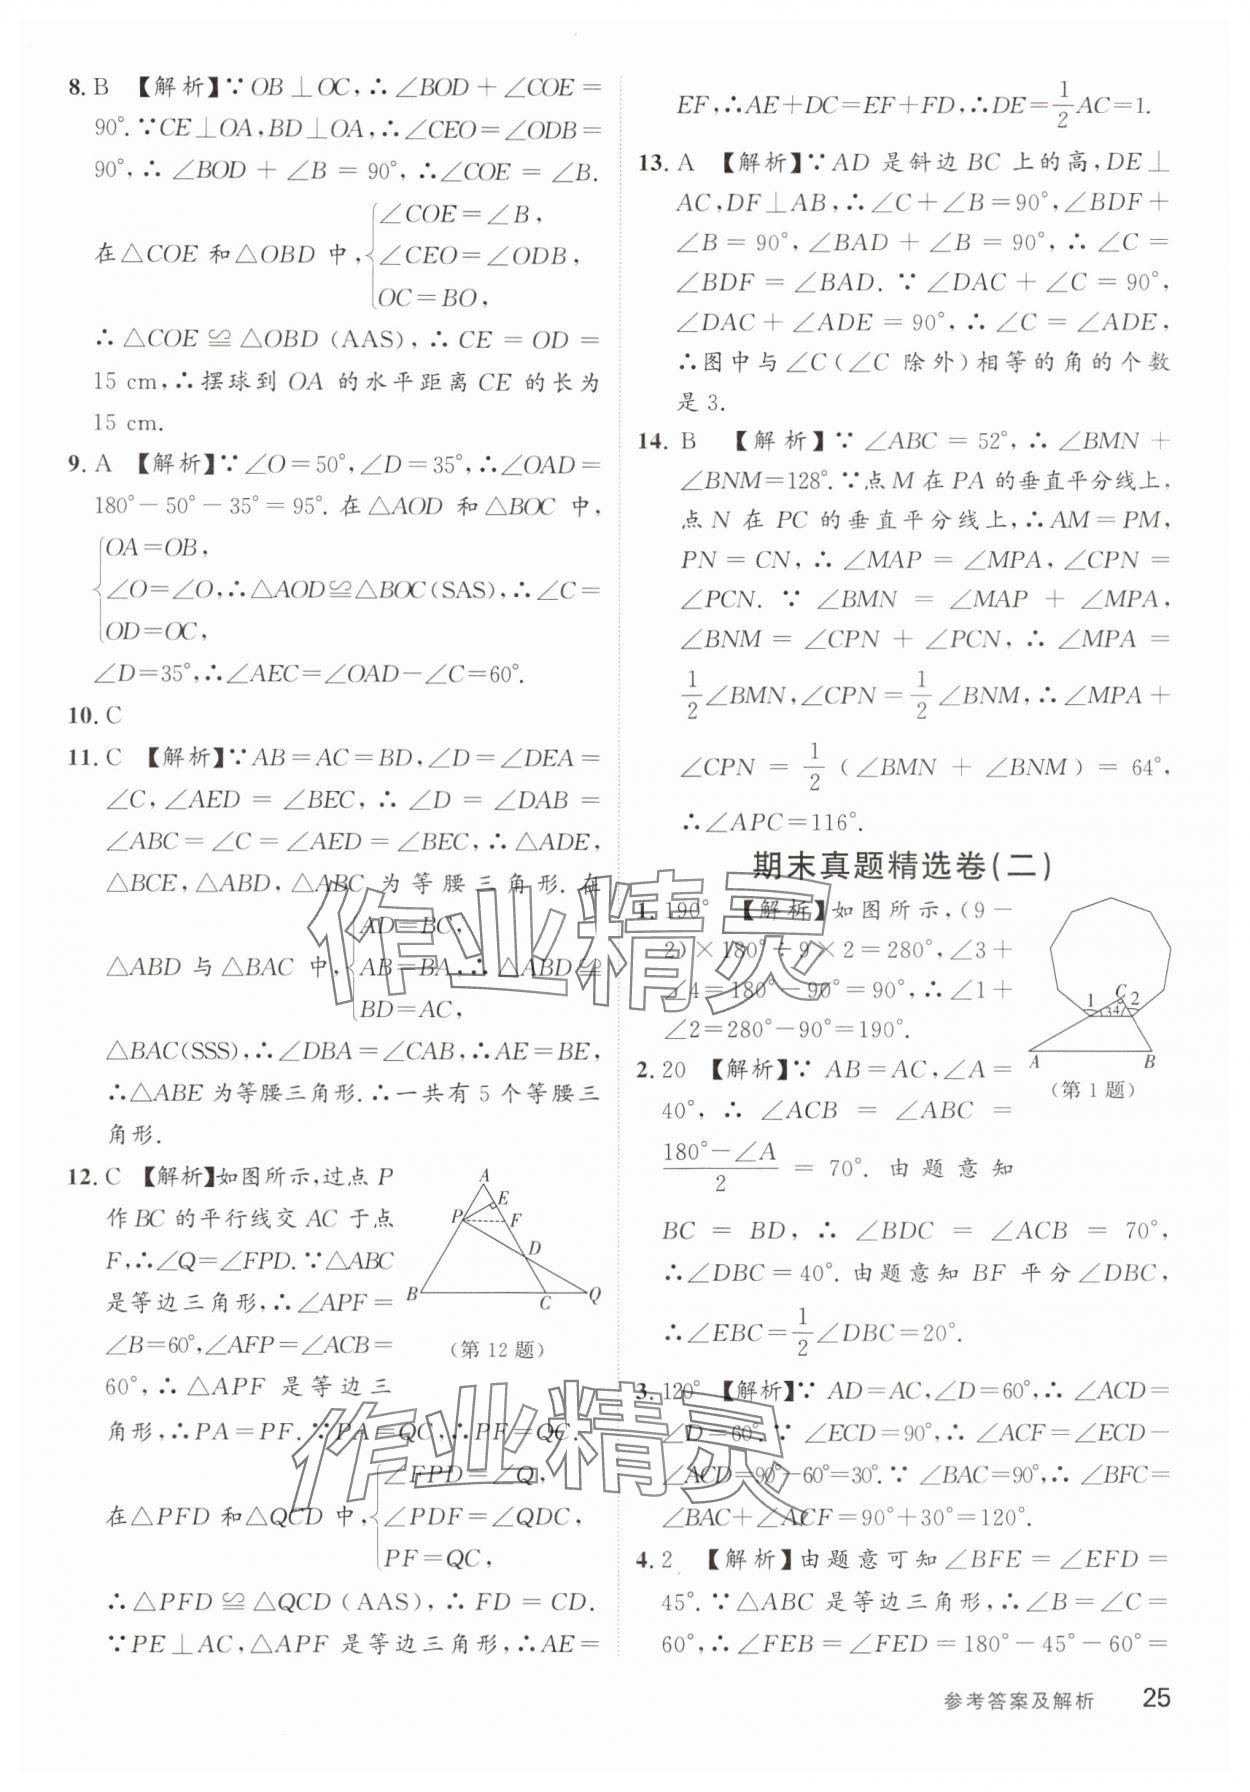 8. B 【解析】∵OB⊥OC,∴∠BOD+∠COE=
90°.∵CE⊥OA,BD⊥OA,∴∠CEO=∠ODB=
90°,∴∠BOD+∠B=90°,∴∠COE=∠B.
在△COE和△OBD中,{∠COE=∠B,
∠CEO=∠ODB,
OC=BO,
∴△COE≌△OBD(AAS),∴CE=OD=
15 cm,∴摆球到OA的水平距离CE的长为
15 cm.
9. A 【解析】∵∠O=50°,∠D=35°,∴∠OAD=
180°-50°-35°=95°.在△AOD和△BOC中,
{OA=OB,
∠O=∠O,∴△AOD≌△BOC(SAS),∴∠C=
OD=OC,
∠D=35°,∴∠AEC=∠OAD-∠C=60°.
10. C
11. C 【解析】∵AB=AC=BD,∠D=∠DEA=
∠C,∠AED=∠BEC,∴∠D=∠DAB=
∠ABC=∠C=∠AED=∠BEC,∴△ADE,
△BCE,△ABD,△ABC为等腰三角形.在
△ABD与△BAC中,{AD=BC,
AB=BA,∴△ABD≌
BD=AC,
△BAC(SSS),∴∠DBA=∠CAB,∴AE=BE,
∴△ABE为等腰三角形.∴一共有5个等腰三
角形.
12. C 【解析】如图所示,过点P
作BC的平行线交AC于点
F,∴∠Q=∠FPD.∵△ABC
是等边三角形,∴∠APF=
∠B=60°,∠AFP=∠ACB=
60°,∴△APF是等边三
角形,∴PA=PF.∵PA=QC,∴PF=QC.
在△PFD和△QCD中,{∠FPD=∠Q,
∠PDF=∠QDC,
PF=QC,
∴△PFD≌△QCD(AAS),∴FD=CD.
∵PE⊥AC,△APF是等边三角形,∴AE=
A
E
P
F
D
B
C
Q
(第12题)
EF,∴AE+DC=EF+FD,∴DE=1/2AC=1.
13. A 【解析】∵AD是斜边BC上的高,DE⊥
AC,DF⊥AB,∴∠C+∠B=90°,∠BDF+
∠B=90°,∠BAD+∠B=90°,∴∠C=
∠BDF=∠BAD.∵∠DAC+∠C=90°,
∠DAC+∠ADE=90°,∴∠C=∠ADE,
∴图中与∠C(∠C除外)相等的角的个数
是3.
14. B 【解析】∵∠ABC=52°,∴∠BMN+
∠BNM=128°.∵点M在PA的垂直平分线上,
点N在PC的垂直平分线上,∴AM=PM,
PN=CN,∴∠MAP=∠MPA,∠CPN=
∠PCN.∵∠BMN=∠MAP+∠MPA,
∠BNM=∠CPN+∠PCN,∴∠MPA=
1/2∠BMN,∠CPN=1/2∠BNM,∴∠MPA+
∠CPN=1/2(∠BMN+∠BNM)=64°,
∴∠APC=116°.
期末真题精选卷(二)
1. 190° 【解析】如图所示,(9-
2)×180°÷9×2=280°,∠3+
∠4=180°-90°=90°,∴∠1+
∠2=280°-90°=190°.
C
1
2
3
4
A
B
(第1题)
2. 20 【解析】∵AB=AC,∠A=
40°,∴∠ACB=∠ABC=
(180°-∠A)/2=70°.由题意知
BC=BD,∴∠BDC=∠ACB=70°,
∴∠DBC=40°.由题意知BF平分∠DBC,
∴∠EBC=1/2∠DBC=20°.
3. 120° 【解析】∵AD=AC,∠D=60°,∴∠ACD=
∠D=60°.∵∠ECD=90°,∴∠ACF=∠ECD-
∠ACD=90°-60°=30°.∵∠BAC=90°,∴∠BFC=
∠BAC+∠ACF=90°+30°=120°.
4. 2 【解析】由题意可知∠BFE=∠EFD=
45°.∵△ABC是等边三角形,∴∠B=∠C=
60°,∴∠FEB=∠FED=180°-45°-60°=
参考答案及解析 25
作业精灵
作业精灵